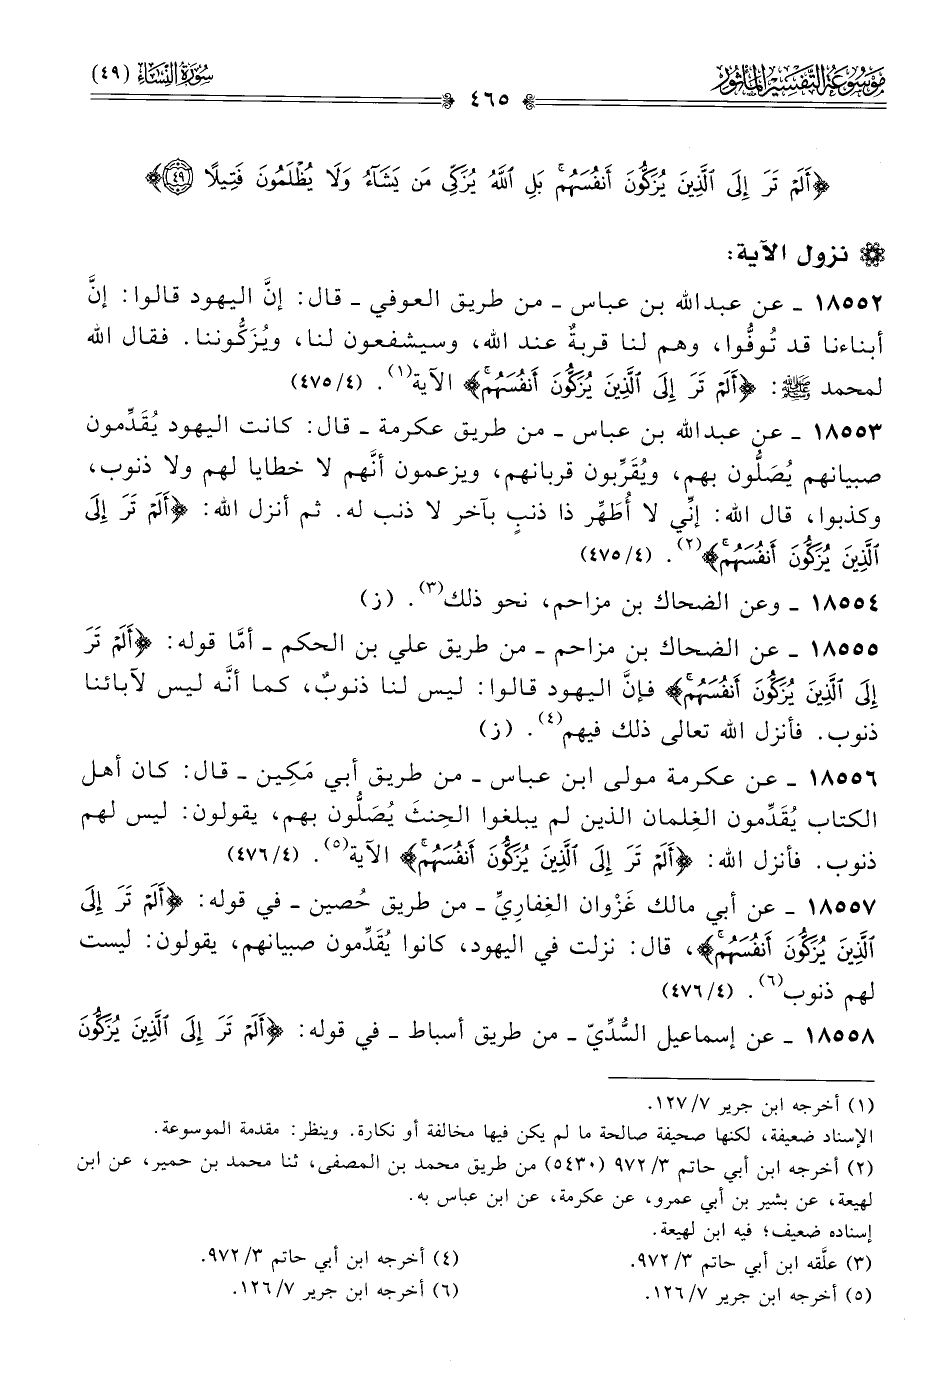 موسوعة التفسير المأثور
٤٦٥
سورة النساء (٤٩)
﴿أَلَمْ تَرَ إِلَى الَّذِينَ يُزَكُّونَ أَنفُسَهُمْ ۚ بَلِ اللَّهُ يُزَكِّي مَن يَشَاءُ وَلَا يُظْلَمُونَ فَتِيلًا ﴿٤٩﴾﴾
نزول الآية:
١٨٥٥٢ ـ عن عبدالله بن عباس ـ من طريق العوفي ـ قال: إنَّ اليهود قالوا: إنَّ
أبناءنا قد تُوفُّوا، وهم لنا قربةٌ عند الله، وسيشفعون لنا، ويُزَكُّوننا. فقال الله
لمحمد ﷺ: ﴿أَلَمْ تَرَ إِلَى الَّذِينَ يُزَكُّونَ أَنفُسَهُمْ ۚ﴾ الآية(١). (٤/٤٧٥)
١٨٥٥٣ ـ عن عبدالله بن عباس ـ من طريق عكرمة ـ قال: كانت اليهود يُقَدِّمون
صبيانهم يُصَلُّون بهم، ويُقَرِّبون قربانهم، ويزعمون أنَّهم لا خطايا لهم ولا ذنوب،
وكذبوا، قال الله: إنِّي لا أُطَهِّر ذا ذنبٍ بآخر لا ذنب له. ثم أنزل الله: ﴿أَلَمْ تَرَ إِلَى
الَّذِينَ يُزَكُّونَ أَنفُسَهُمْ ۚ﴾(٢). (٤/٤٧٥)
١٨٥٥٤ ـ وعن الضحاك بن مزاحم، نحو ذلك(٣). (ز)
١٨٥٥٥ ـ عن الضحاك بن مزاحم ـ من طريق علي بن الحكم ـ أمَّا قوله: ﴿أَلَمْ تَرَ
إِلَى الَّذِينَ يُزَكُّونَ أَنفُسَهُمْ ۚ﴾ فإنَّ اليهود قالوا: ليس لنا ذنوبٌ، كما أنَّه ليس لآبائنا
ذنوب. فأنزل الله تعالى ذلك فيهم(٤). (ز)
١٨٥٥٦ ـ عن عكرمة مولى ابن عباس ـ من طريق أبي مَكِين ـ قال: كان أهل
الكتاب يُقَدِّمون الغِلمان الذين لم يبلغوا الحِنثَ يُصَلُّون بهم، يقولون: ليس لهم
ذنوب. فأنزل الله: ﴿أَلَمْ تَرَ إِلَى الَّذِينَ يُزَكُّونَ أَنفُسَهُمْ ۚ﴾ الآية(٥). (٤/٤٧٦)
١٨٥٥٧ ـ عن أبي مالك غَزْوان الغِفاريِّ ـ من طريق حُصين ـ في قوله: ﴿أَلَمْ تَرَ إِلَى
الَّذِينَ يُزَكُّونَ أَنفُسَهُمْ ۚ﴾، قال: نزلت في اليهود، كانوا يُقَدِّمون صبيانهم، يقولون: ليست
لهم ذنوب(٦). (٤/٤٧٦)
١٨٥٥٨ ـ عن إسماعيل السُّدِّيّ ـ من طريق أسباط ـ في قوله: ﴿أَلَمْ تَرَ إِلَى الَّذِينَ يُزَكُّونَ
(١) أخرجه ابن جرير ٧/ ١٢٧.
الإسناد ضعيفة، لكنها صحيفة صالحة ما لم يكن فيها مخالفة أو نكارة. وينظر: مقدمة الموسوعة.
(٢) أخرجه ابن أبي حاتم ٣/ ٩٧٢ (٥٤٣٠) من طريق محمد بن المصفى، ثنا محمد بن حمير، عن ابن
لهيعة، عن بشير بن أبي عمرو، عن عكرمة، عن ابن عباس به.
إسناده ضعيف؛ فيه ابن لهيعة.
(٣) علَّقه ابن أبي حاتم ٣/ ٩٧٢.
(٤) أخرجه ابن أبي حاتم ٣/ ٩٧٢.
(٥) أخرجه ابن جرير ٧/ ١٢٦.
(٦) أخرجه ابن جرير ٧/ ١٢٦.